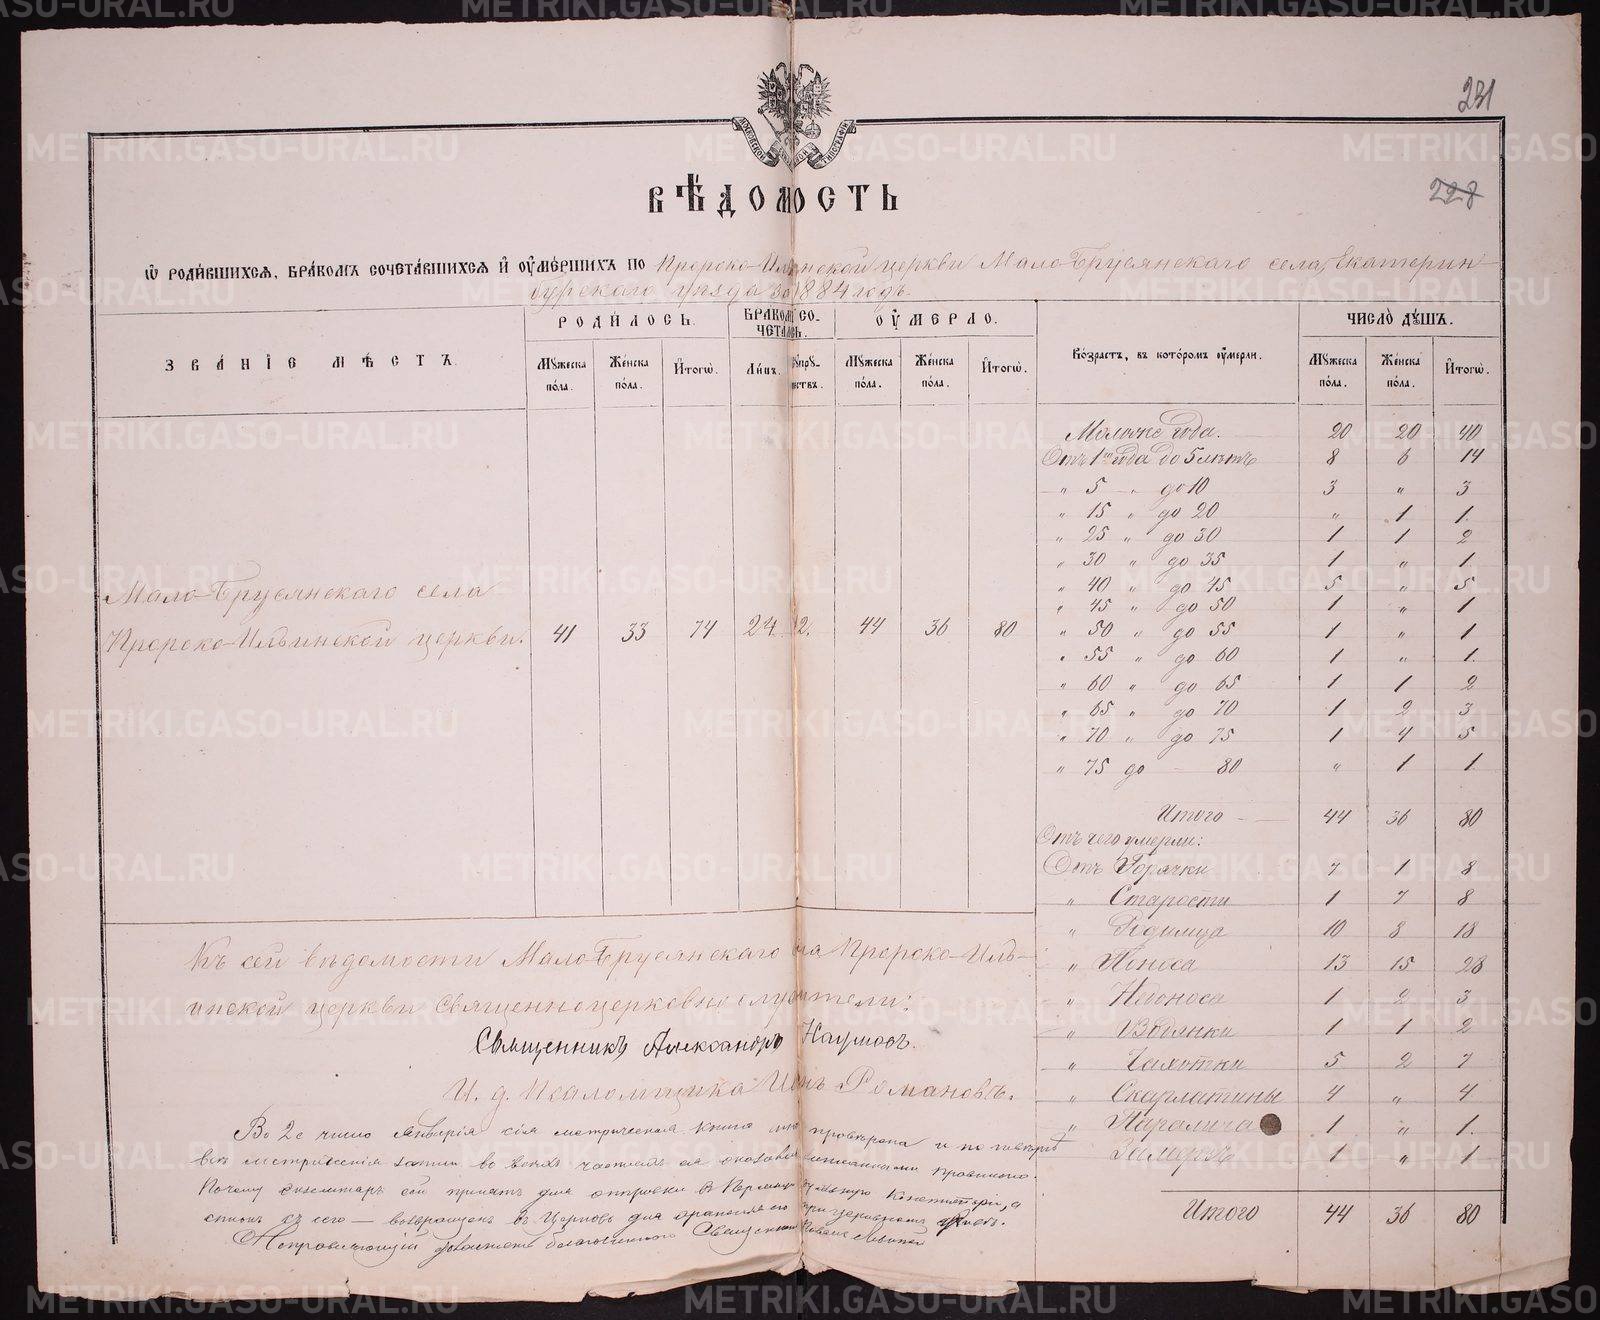 231
228
МОСКОВСКОЙ СѴНОДАЛЬНОЙ ТИПОГРАФІИ
ВѢДОМОСТЬ
Ѽ РОДИВШИХСЯ, БРАКОМЪ СОЧЕТАВШИХСЯ И ОУМЕРШИХЪ ПО Пророко-Ильинской церкви Мало-Брусянскаго села, Екатерин
бургскаго уѣзда за 1884 годъ.
ЗВАНІЕ МѢСТЪ. РОДИЛОСЬ. БРАКОМЪ СОЧЕТАЛОСЬ. ОУМЕРЛО. Возрастъ, въ которомъ оумерли. ЧИСЛО ДУШЪ.
Мужеска пола. Женска пола. Итогѡ. Лицъ. Супружествъ. Мужеска пола. Женска пола. Итогѡ. Мужеска пола. Женска пола. Итогѡ.
Мало-Брусянскаго села
Пророко-Ильинской церкви. 41 33 74 24 12. 44 36 80
Молочнѣ года. 20 20 40
Отъ 1го года до 5 лѣтъ 8 6 14
" 5 " до 10 3 " 3
" 15 " до 20 " 1 1.
" 25 " до 30 1 1 2
" 30 " до 35 1 " 1
" 40 " до 45 5 " 5
" 45 " до 50 1 " 1
" 50 " до 55 1 " 1
" 55 " до 60 1 " 1.
" 60 " до 65 1 1 2
" 65 " до 70 1 2 3
" 70 " до 75 1 4 5
" 75 до 80 " 1 1.
Итого 44 36 80
Отъ чего умерли:
Отъ Горячки 7 1 8
" Старости 1 7 8
" Родимца 10 8 18
" Поноса 13 15 28
" Недоноса 1 2 3
" Водянки 1 1 2
" Чахотки 5 2 7
" Скарлатины 4 " 4
" Паралича 1 " 1.
" Замерзъ 1 " 1
Итого 44 36 80
Къ сей вѣдомости Мало-Брусянскаго села Пророко-Иль-
инской церкви Священноцерковнослужители:
Священникъ Александръ Наумовъ.
И. д. Псаломщика Иванъ Романовъ.
Во 2е число Января сія метрическая книга мною провѣрена и по повѣркѣ
всѣ метрическія записи во всѣхъ частяхъ ея оказались записанными правильно.
Почему экземпляръ сей принятъ для отправки въ Пермскую духовную Консисторію, а
списокъ съ сего — возвращенъ въ Церковь для храненія его при церковномъ архивѣ.
Исправляющій должность благочиннаго Священникъ
METRIKI.GASO-URAL.RU